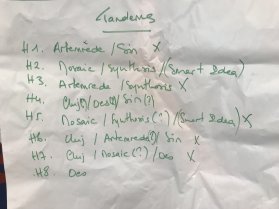 Tandems
H1. Artemrede / Sin X
H2. Mosaic / Synthesis / (Smart Idea)
H3. Artemrede / Synthosis X
H4. Cluj(?) / Des(?) / Sin (?)
H5. Mosaic / Synthesis (?) / (Smart Idea) X
H6. Cluj / Artemrede(?) / Sin X
H7. Cluj / Mosaic (?) / Des X
H8. Des